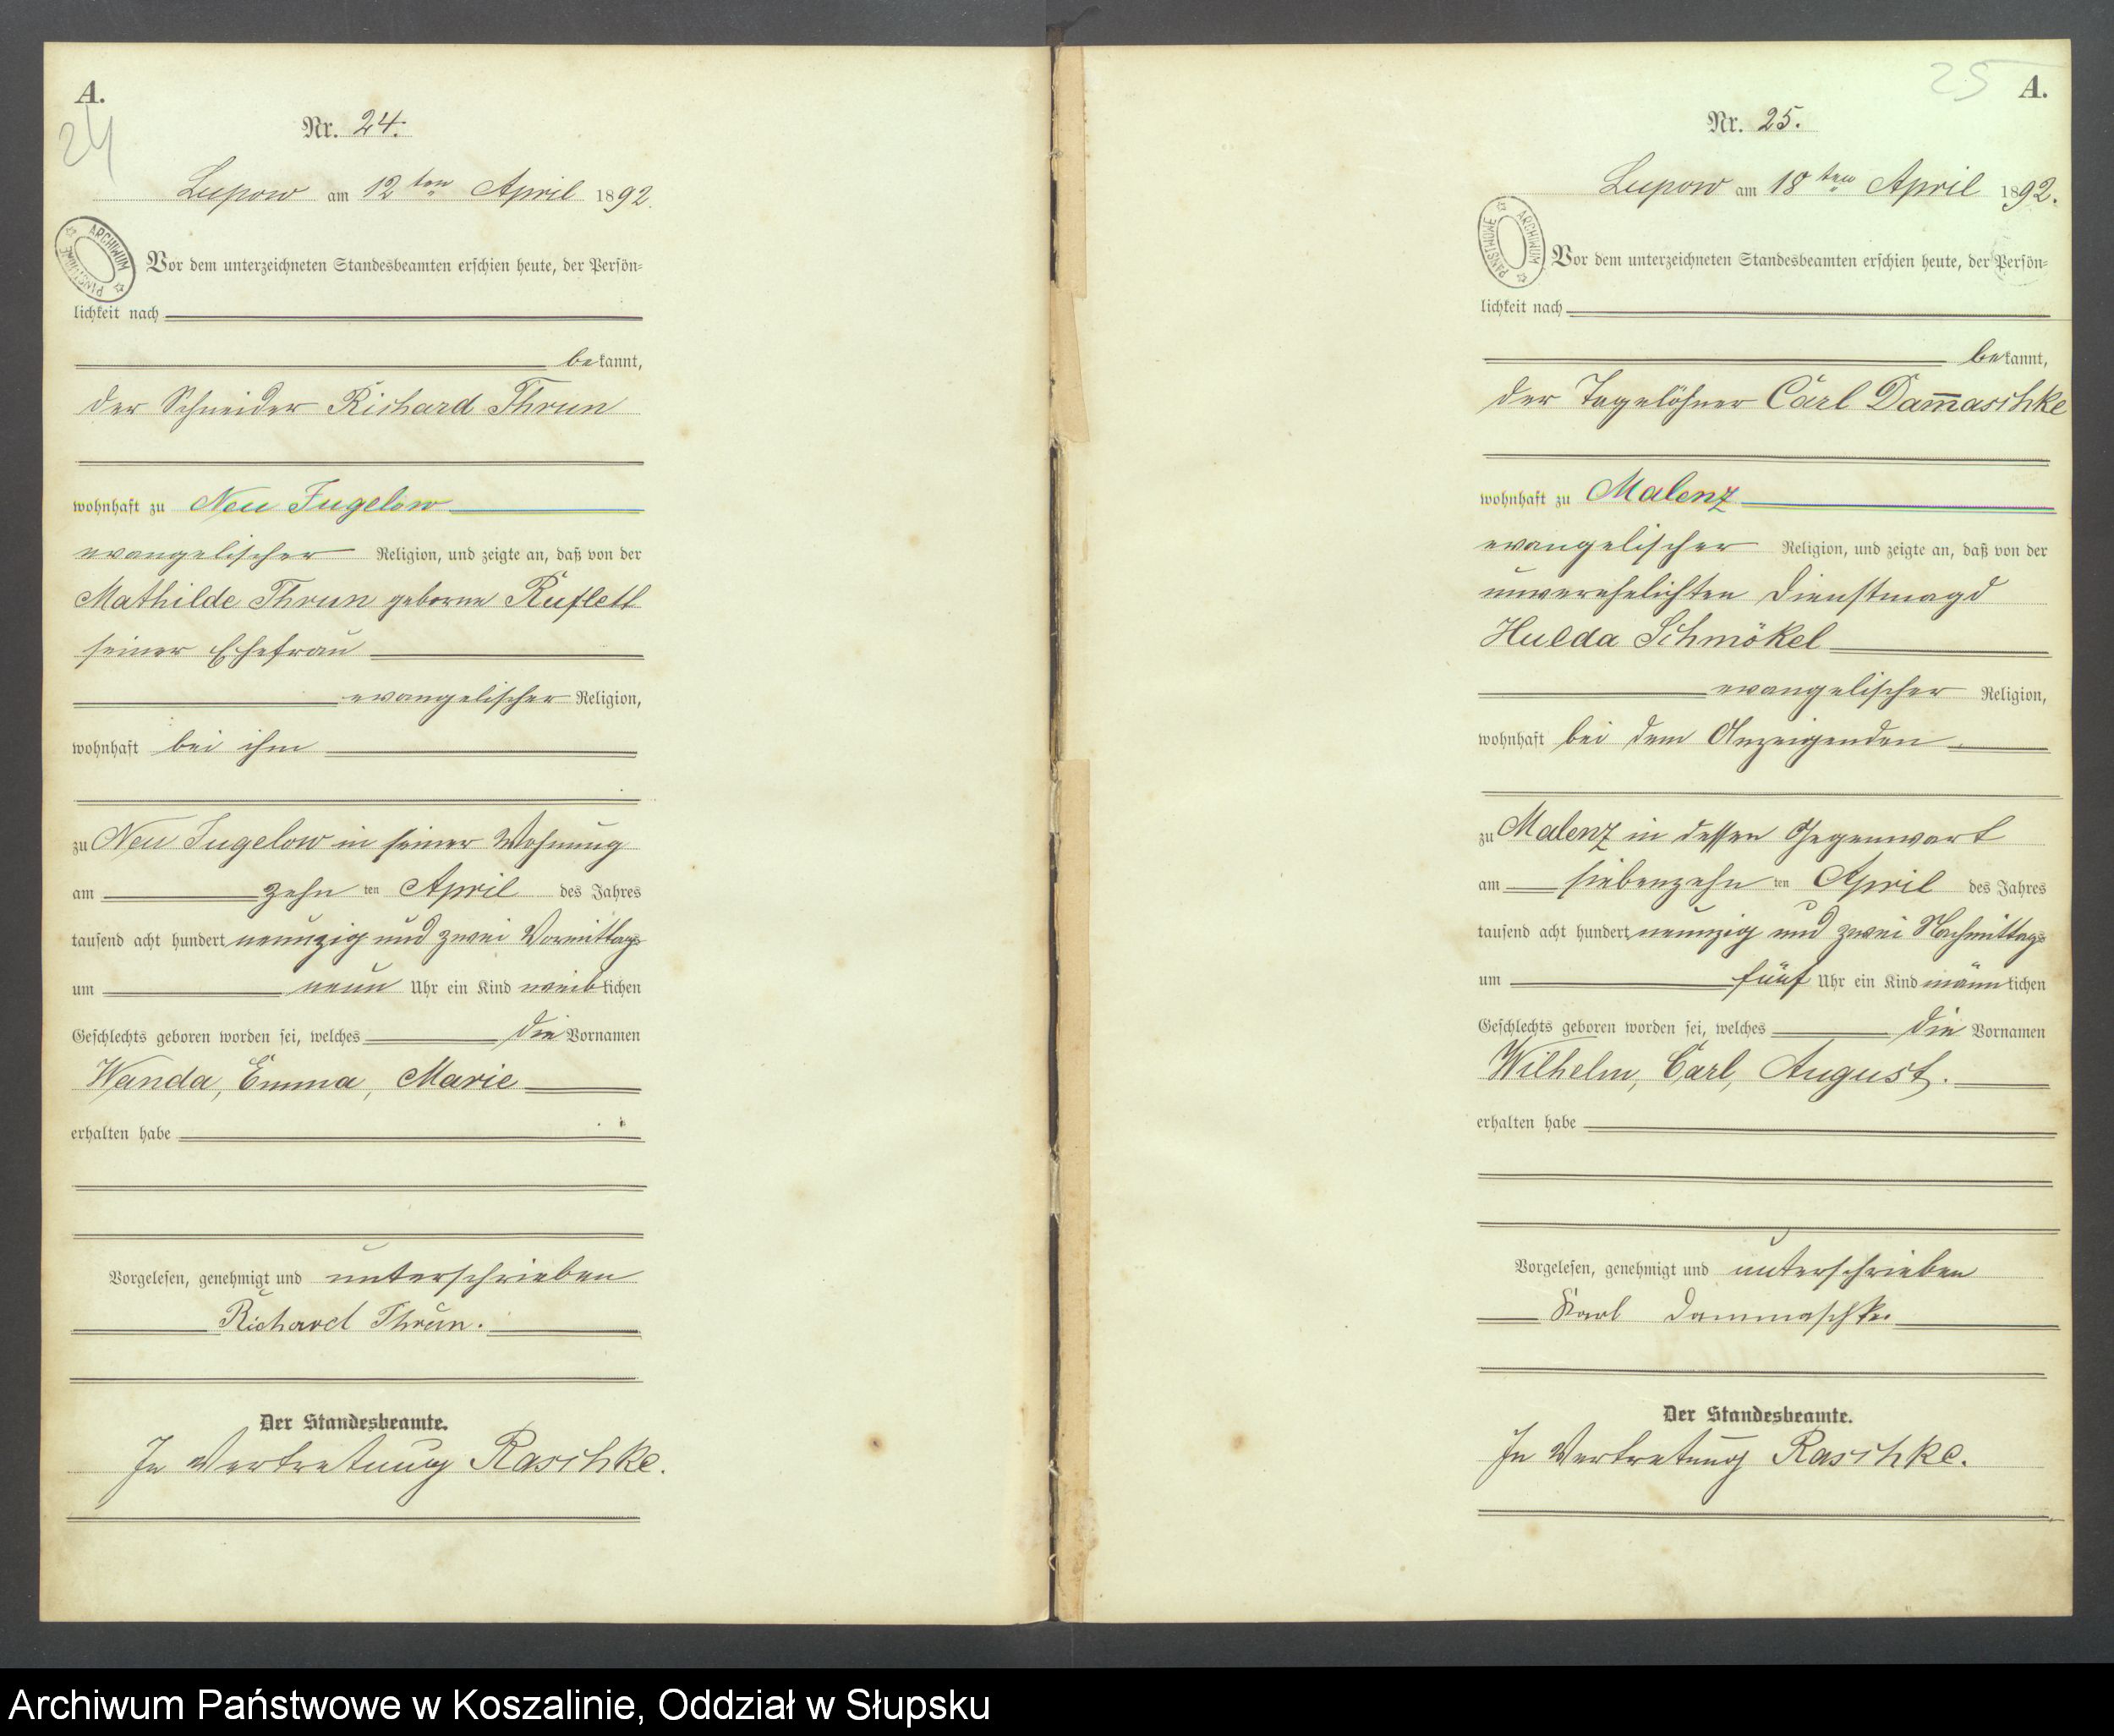 A.
24
Nr. 24.
Lupow am 12ten April 1892.
ARCHIWUM PAŃSTWOWE
Vor dem unterzeichneten Standesbeamten erschien heute, der Persön=
lichkeit nach
bekannt,
der Schneider Richard Thrun
wohnhaft zu Neu Jugelow
evangelischer Religion, und zeigte an, daß von der
Mathilde Thrun geborne
seiner Ehefrau
evangelischer Religion,
wohnhaft bei ihm
zu Neu Jugelow in seiner Wohnung
am zehn ten April des Jahres
tausend acht hundert neunzig und zwei Vormittags
um neun Uhr ein Kind weiblichen
Geschlechts geboren worden sei, welches die Vornamen
Wanda, Emma, Marie
erhalten habe
Vorgelesen, genehmigt und unterschrieben
Richard Thrun.
Der Standesbeamte.
In Vertretung Raschke.
25
A.
Nr. 25.
Lupow am 18ten April 1892.
ARCHIWUM PAŃSTWOWE
Vor dem unterzeichneten Standesbeamten erschien heute, der Persön=
lichkeit nach
bekannt,
der Tagelöhner Carl Dam̅aschke
wohnhaft zu Malenz
evangelischer Religion, und zeigte an, daß von der
unverehelichten Dienstmagd
Hulda Schmökel
evangelischer Religion,
wohnhaft bei dem Anzeigenden
zu Malenz in dessen Gegenwart
am siebenzehn ten April des Jahres
tausend acht hundert neunzig und zwei Nachmittags
um fünf Uhr ein Kind männlichen
Geschlechts geboren worden sei, welches die Vornamen
Wilhelm, Carl, August.
erhalten habe
Vorgelesen, genehmigt und unterschrieben
Karl Dammaschke
Der Standesbeamte.
In Vertretung Raschke.
Archiwum Państwowe w Koszalinie, Oddział w Słupsku